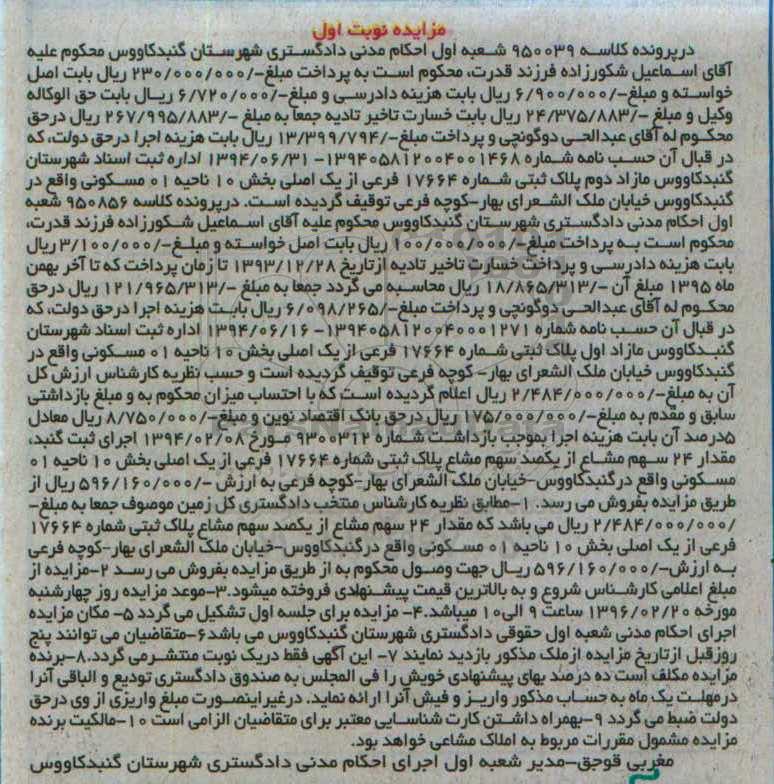 مزایده نوبت اول
درپرونده کلاسه ۹۵۰۰۳۹ شعبه اول احکام مدنی دادگستری شهرستان گنبدکاووس محکوم علیه
آقای اسماعیل شکورزاده فرزند قدرت، محکوم است به پرداخت مبلغ-/۲۳۰/۰۰۰/۰۰۰ ریال بابت اصل
خواسته و مبلغ-/۶/۹۰۰/۰۰۰ ریال بابت هزینه دادرسی و مبلغ-/۶/۷۲۰/۰۰۰ ریال بابت حق الوکاله
وکیل و مبلغ -/۲۴/۳۷۵/۸۸۳ ریال بابت خسارت تاخیر تادیه جمعا به مبلغ -/۲۶۷/۹۹۵/۸۸۳ ریال درحق
محکوم له آقای عبدالحی دوگونچی و پرداخت مبلغ-/۱۳/۳۹۹/۷۹۴ ریال بابت هزینه اجرا درحق دولت، که
در قبال آن حسب نامه شماره ۱۳۹۴۰۵۸۱۲۰۰۴۰۰۱۴۶۸- ۱۳۹۴/۰۶/۳۱ اداره ثبت اسناد شهرستان
گنبدکاووس مازاد دوم پلاک ثبتی شماره ۱۷۶۶۴ فرعی از یک اصلی بخش ۱۰ ناحیه ۰۱ مسکونی واقع در
گنبدکاووس خیابان ملک الشعرای بهار-کوچه فرعی توقیف گردیده است. درپرونده کلاسه ۹۵۰۸۵۶ شعبه
اول احکام مدنی دادگستری شهرستان گنبدکاووس محکوم علیه آقای اسماعیل شکورزاده فرزند قدرت،
محکوم است به پرداخت مبلغ-/۱۰۰/۰۰۰/۰۰۰ ریال بابت اصل خواسته و مبلغ-/۳/۱۰۰/۰۰۰ ریال
بابت هزینه دادرسی و پرداخت خسارت تاخیر تادیه ازتاریخ ۱۳۹۳/۱۲/۲۸ تا زمان پرداخت که تا آخر بهمن
ماه ۱۳۹۵ مبلغ آن -/۱۸/۸۶۵/۳۱۳ ریال محاسبه می گردد جمعا به مبلغ -/۱۲۱/۹۶۵/۳۱۳ ریال درحق
محکوم له آقای عبدالحی دوگونچی و پرداخت مبلغ-/۶/۰۹۸/۲۶۵ ریال بابت هزینه اجرا درحق دولت، که
در قبال آن حسب نامه شماره ۱۳۹۴۰۵۸۱۲۰۰۴۰۰۰۱۲۷۱- ۱۳۹۴/۰۶/۱۶ اداره ثبت اسناد شهرستان
گنبدکاووس مازاد اول پلاک ثبتی شماره ۱۷۶۶۴ فرعی از یک اصلی بخش ۱۰ ناحیه ۰۱ مسکونی واقع در
گنبدکاووس خیابان ملک الشعرای بهار- کوچه فرعی توقیف گردیده است و حسب نظریه کارشناس ارزش کل
آن به مبلغ-/۲/۴۸۴/۰۰۰/۰۰۰ ریال اعلام گردیده است که با احتساب میزان محکوم به و مبلغ بازداشتی
سابق و مقدم به مبلغ-/۱۷۵/۰۰۰/۰۰۰ ریال درحق بانک اقتصاد نوین و مبلغ-/۸/۷۵۰/۰۰۰ ریال معادل
۵درصد آن بابت هزینه اجرا بموجب بازداشت شماره ۹۳۰۰۳۱۲ مورخ ۱۳۹۴/۰۲/۰۸ اجرای ثبت گنبد،
مقدار ۲۴ سهم مشاع از یکصد سهم مشاع پلاک ثبتی شماره ۱۷۶۶۴ فرعی از یک اصلی بخش ۱۰ ناحیه ۰۱
مسکونی واقع درگنبدکاووس-خیابان ملک الشعرای بهار-کوچه فرعی به ارزش -/۵۹۶/۱۶۰/۰۰۰ ریال از
طریق مزایده بفروش می رسد. ۱-مطابق نظریه کارشناس منتخب دادگستری کل زمین موصوف جمعا به مبلغ-
/۲/۴۸۴/۰۰۰/۰۰۰ ریال می باشد که مقدار ۲۴ سهم مشاع از یکصد سهم مشاع پلاک ثبتی شماره ۱۷۶۶۴
فرعی از یک اصلی بخش ۱۰ ناحیه ۰۱ مسکونی واقع درگنبدکاووس-خیابان ملک الشعرای بهار-کوچه فرعی
به ارزش-/۵۹۶/۱۶۰/۰۰۰ ریال جهت وصول محکوم به از طریق مزایده بفروش می رسد ۲-مزایده از
مبلغ اعلامی کارشناس شروع و به بالاترین قیمت پیشنهادی فروخته میشود.۳-موعد مزایده روز چهارشنبه
مورخه ۱۳۹۶/۰۲/۲۰ ساعت ۹ الی۱۰ میباشد.۴- مزایده برای جلسه اول تشکیل می گردد ۵- مکان مزایده
اجرای احکام مدنی شعبه اول حقوقی دادگستری شهرستان گنبدکاووس می باشد۶-متقاضیان می توانند پنج
روزقبل ازتاریخ مزایده ازملک مذکور بازدید نمایند ۷- این آگهی فقط دریک نوبت منتشرمی گردد.۸-برنده
مزایده مکلف است ده درصد بهای پیشنهادی خویش را فی المجلس به صندوق دادگستری تودیع و الباقی آنرا
درمهلت یک ماه به حساب مذکور واریز و فیش آنرا ارائه نماید. درغیراینصورت مبلغ واریزی از وی درحق
دولت ضبط می گردد ۹-بهمراه داشتن کارت شناسایی معتبر برای متقاضیان الزامی است ۱۰-مالکیت برنده
مزایده مشمول مقررات مربوط به املاک مشاعی خواهد بود.
مغربی قوجق-مدیر شعبه اول اجرای احکام مدنی دادگستری شهرستان گنبدکاووس